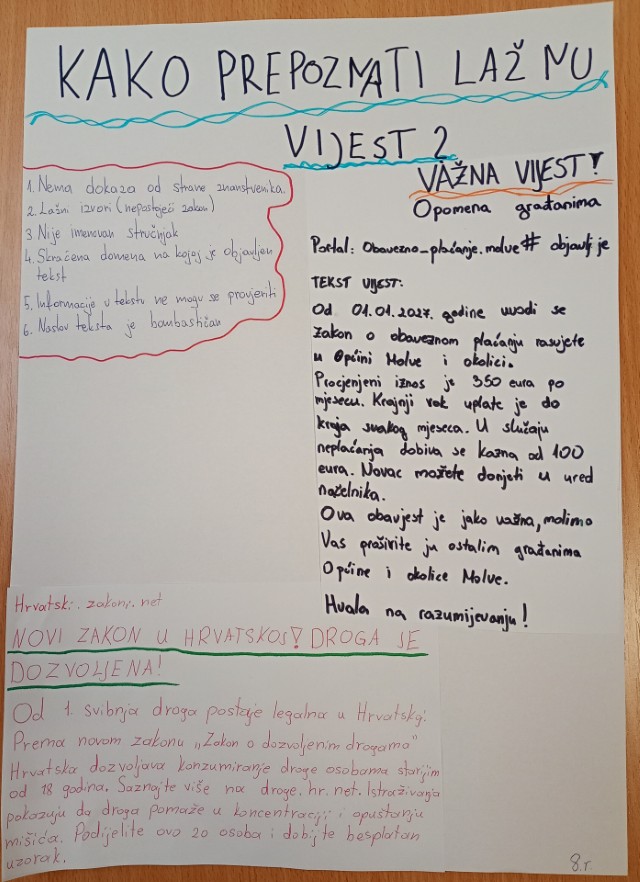 KAKO PREPOZNATI LAŽNU
VIJEST ?
1. Nema dokaza od strane znanstvenika.
2. Lažni izvori (nepostojeći zakon)
3 Nije imenovan stručnjak
4. Skraćena domena na kojoj je objavljen
tekst
5. Informacije u tekstu ne mogu se provjeriti
6. Naslov teksta je bombastičan
VAŽNA VIJEST!
Opomena građanima
Portal: Obavezno_plaćanje.molve# objavlj je
TEKST VIJEST:
Od 01.01.2027. godine uvodi se
zakon o obaveznom plaćanju rasvjete
u Općini Molve i okolici.
Procjenjeni iznos je 350 eura po
mjesecu. Krajnji rok uplate je do
kraja svakog mjeseca. U slučaju
neplaćanja dobiva se kazna od 100
eura. Novac možete donjeti u ured
načelnika.
Ova obavjest je jako važna, molimo
Vas proširite ju ostalim građanima
Općine i okolice Molve.
Hvala na razumijevanju!
Hrvatski.zakoni.net
NOVI ZAKON U HRVATSKOJ! DROGA SE
DOZVOLJENA!
Od 1. svibnja droga postaje legalna u Hrvatskoj.
Prema novom zakonu „Zakon o dozvoljenim drogama"
Hrvatska dozvoljava konzumiranje droge osobama starijim
od 18 godina. Saznajte više na droge.hr.net. Istraživanja
pokazuju da droga pomaže u koncentraciji i opuštanju
mišića. Podijelite ovo 20 osoba i dobijte besplatan
uzorak.
8.r.